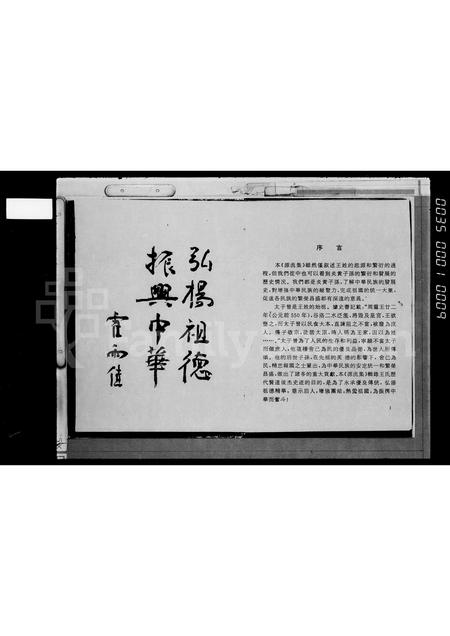 弘揚祖德
振興中華
序言
本《源流集》雖然僅叙述王姓的起源和繁衍的過
程，但我們從中也可以看到炎黃子孫的繁衍和發展的
歷史情況。我們都是炎黃子孫，了解中華民族的發展
史，對增強中華民族的凝聚力，完成祖國的統一大業，
促進各民族的繁榮昌盛都有深遠的意義。
太子晉是王姓的始祖。據史書記載，"周靈王廿二
年《公元前550年》，谷洛二水泛濫，將毀及皇宮，王欲
壅之，而太子晉以民食大本，直諫阻之不當，被廢為庶
人，傳子敬宗，
……，"太子晉為了人民的生存和利益，寧願不當太子
而做庶人，他這種舍己為民的優良品德，為世人所傳
頌。他的后世子孫，在先祖的美德的影響下，舍己為
民，精忠報國之士輩出，為中華民族的安定統一和繁榮
昌盛，做出了諸多的重大貢獻。本《源流集》輯錄王氏歷
代賢達俊杰史迹的目的，是為了永承優良傳統，弘揚
祖德精華，昔示后人，增強團結，熱愛祖國，為振興中
華而奮斗！
1
0035 1000 60009